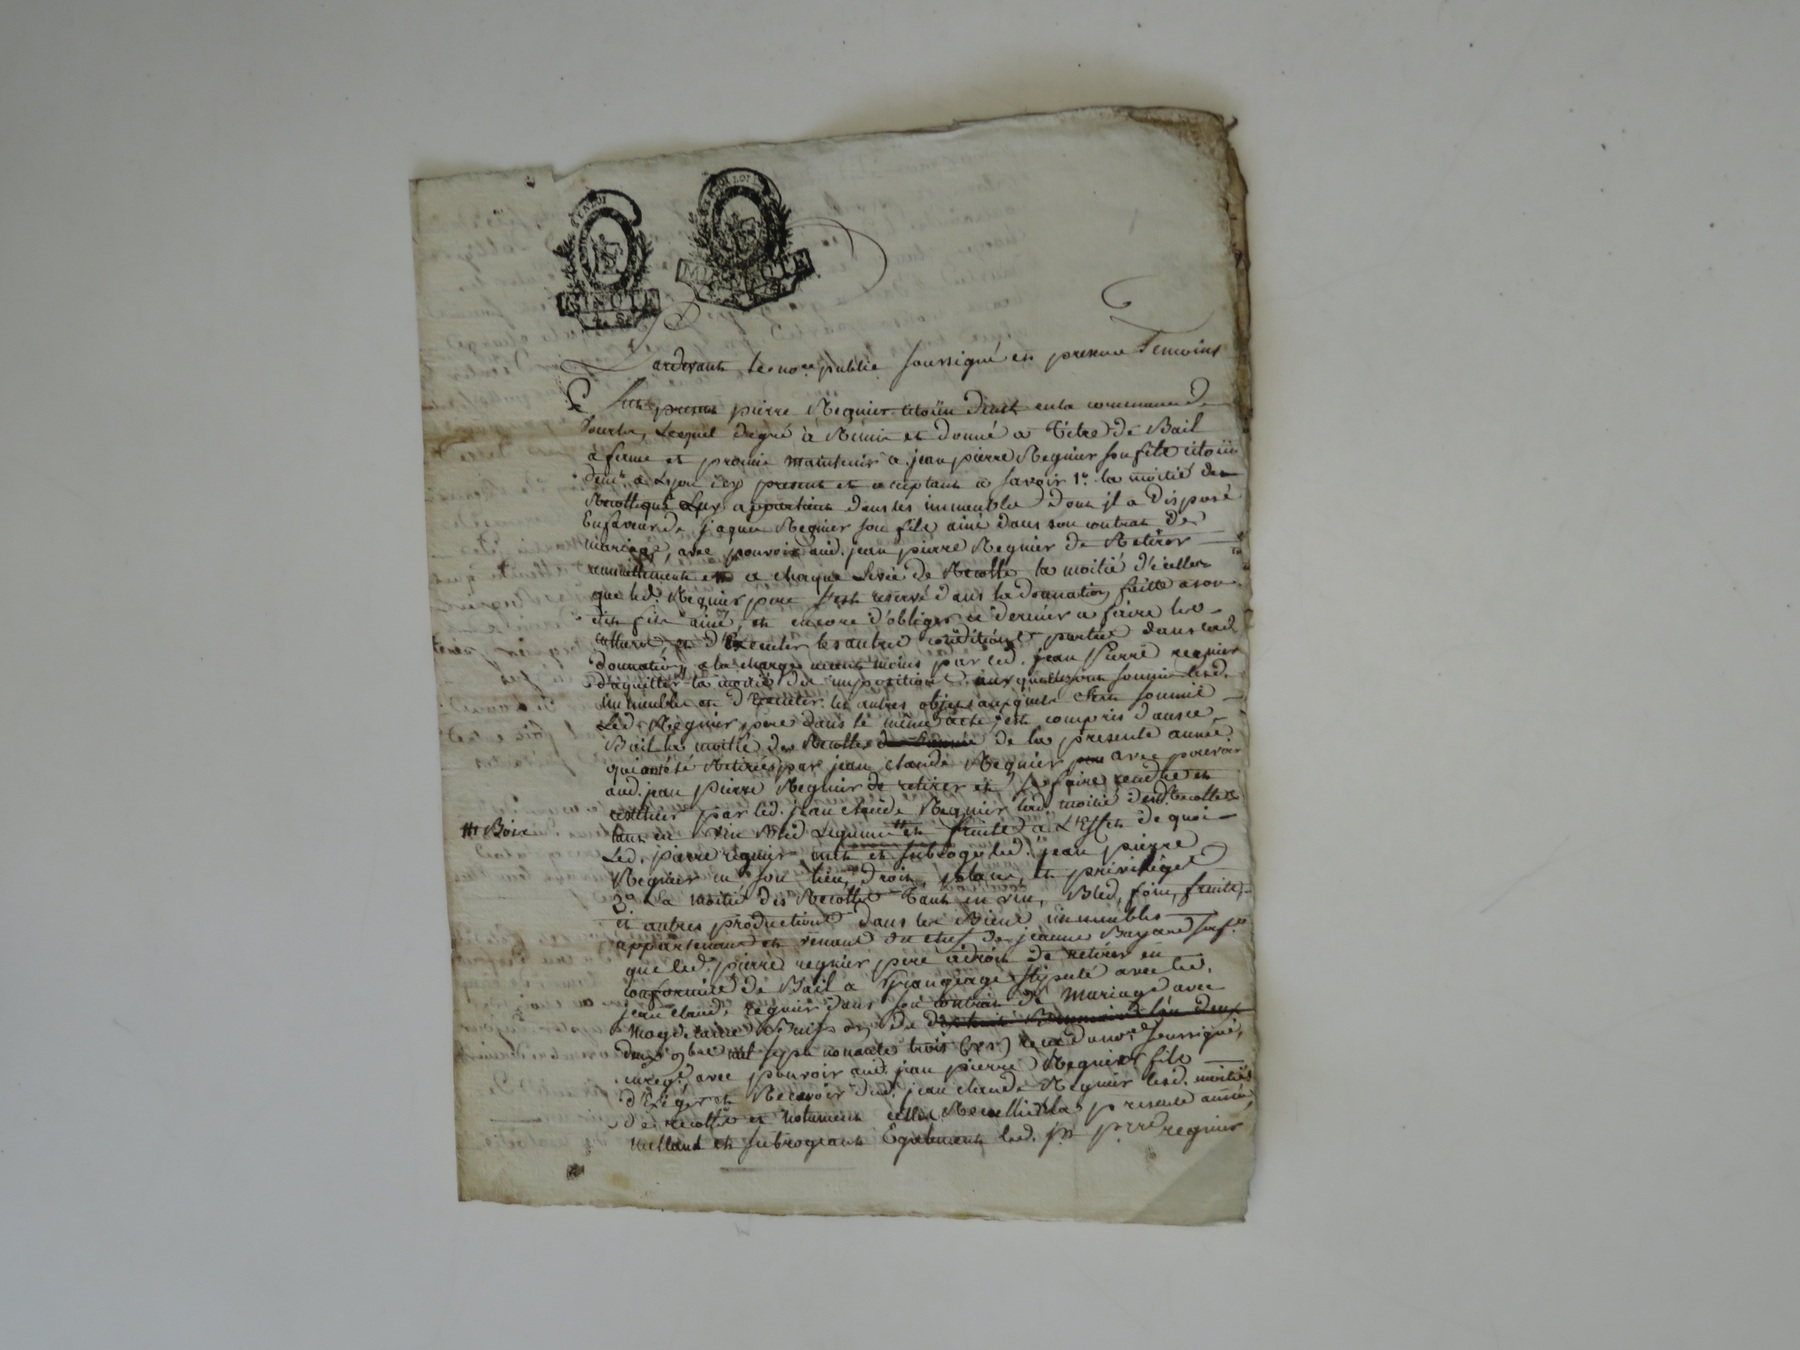 LA LOI
LA LOI
MINUTE
MINUTE
Pardevant le no.re publie soussigné en presence Temoins
fut present pierre Regnier citoÿin dem.t en la commune de
Sourcu, Lequel degré à Remis et donné a titre de Bail
a ferme et promis maintenir a jean pierre Regnier son fils citoïin
dem.t a Lyon icy present et acceptant a savoir 1.o la moitié des
Recottes qui Luy appartient dans les immeubles dont jl a disposé
En faveur de jaques Regnier son fils ainé dans son contrat de
mariage, avec pouvoir aud. jean pierre Regnier de Retirer
annuellement et a chaque Levée de Recotte la moitié d'icelles
que led. Regnier pere s'est reservé dans la donnation faitte a son
dit fils ainé, et encore d'obliger ce dernier a faire les
cultures, et d'Executer les autres conditions portées dans lad.
donnation a la charge neant moins par led. jean Pierre regnier
d'aquitter la moitié des impositions auxquelles sont soumis lesd.
immeubles et d'Executer les autres objets auxquels s'est soumis
Led. Regnier pere dans le même acte, est compris dans ce
Bail la moitié des Recottes de la presente année
qui ont été Retirées par jean claude Regnier avec pouvoir
aud. jean pierre Regnier de retirer et se faire rendre et
restituer par led. jean claude Regnier lad. moitié desd. Recottes
tant en vin Bled Legumes et fruits a L'Effet de quoi
Bois
Led. pierre regnier met et subroge led. jean pierre
Regnier en son lieu, droit, place, et privilege
2.o La moitié des Recottes tant en vin, Bled, foin, fruits,
et autres productions dans les Biens immeubles
appartenant et venant du chef de jeanne Bayard sa f.e
que led. pierre regnier pere a droit de retirer en
conformité de Bail a Grangeage stipulé avec led.
jean claude regnier dans son contrat de Mariage avec
Magdelaine du
douze 9.bre mil sept nonante trois (v.s.) receu du no.re soussigné,
enreg.é, avec pouvoir aud. jean pierre Regnier fils
d'Exiger et Recevoir dud. jean claude Regnier lesd. moitiés
de recottes et notament celles Receuillies la presente année,
mettant et subrogeant Egalement led. j.n p.rre regnier